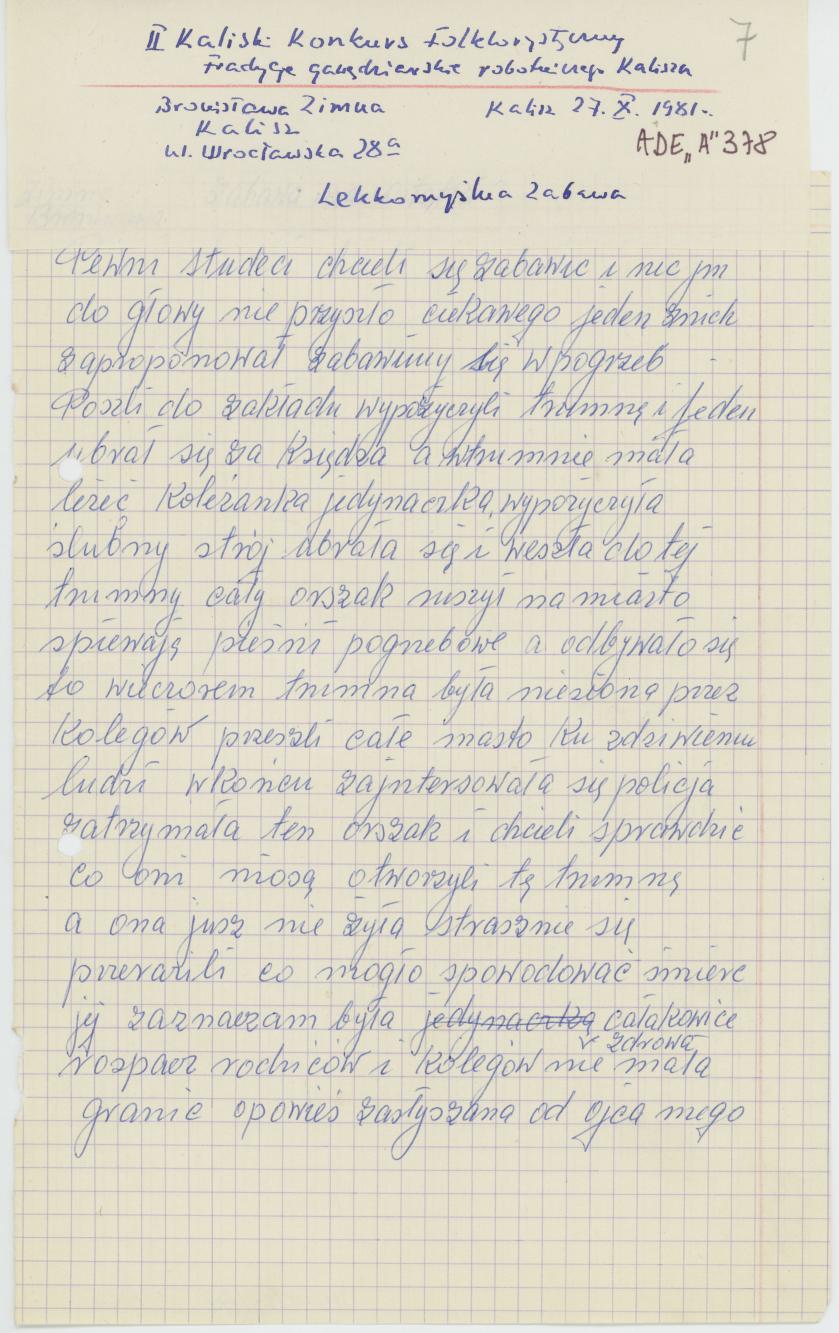 7
II Kaliski Konkurs Folklorystyczny
Tradycje gawędziarskie robotniczego Kalisza
Bronisława Zimna Kalisz 27. X. 1981.
Kalisz
ul. Wrocławska 28a ADE„A"378
Lekkomyślna Zabawa
Pewni studeci chcieli się zabawic i nic jm
do głowy nie przyszło ciekawego jeden znich
zaproponował zabawimy się wpogrzeb
Poszli do zakładu wypożyczyli trumnę i jeden
ubrał się za księdza a wtrumnie miała
leżeć koleżanka jedynaczka, wypożyczyła
slubny strój ubrała się i weszła do tej
trumny cały orszak ruszył na miasto
spiewają pieśni pogrzebowe a odbywało się
to wieczorem trumna była niesiona przez
kolegów przeszli całe miasto ku zdziwieniu
ludzi wkońcu zajntersowała się policja
zatrzymała ten orszak i chcieli sprawdzić
co oni niosą otworzyli tą trumnę
a ona jusz nie żyła strasznie się
przerazili co mogło spowodować śmierc
jej zaznaczam była jedynaczką całakowice
zdrowa
rospacz rodziców i kolegów nie miała
granic opowieś zasłyszana od ojca mego